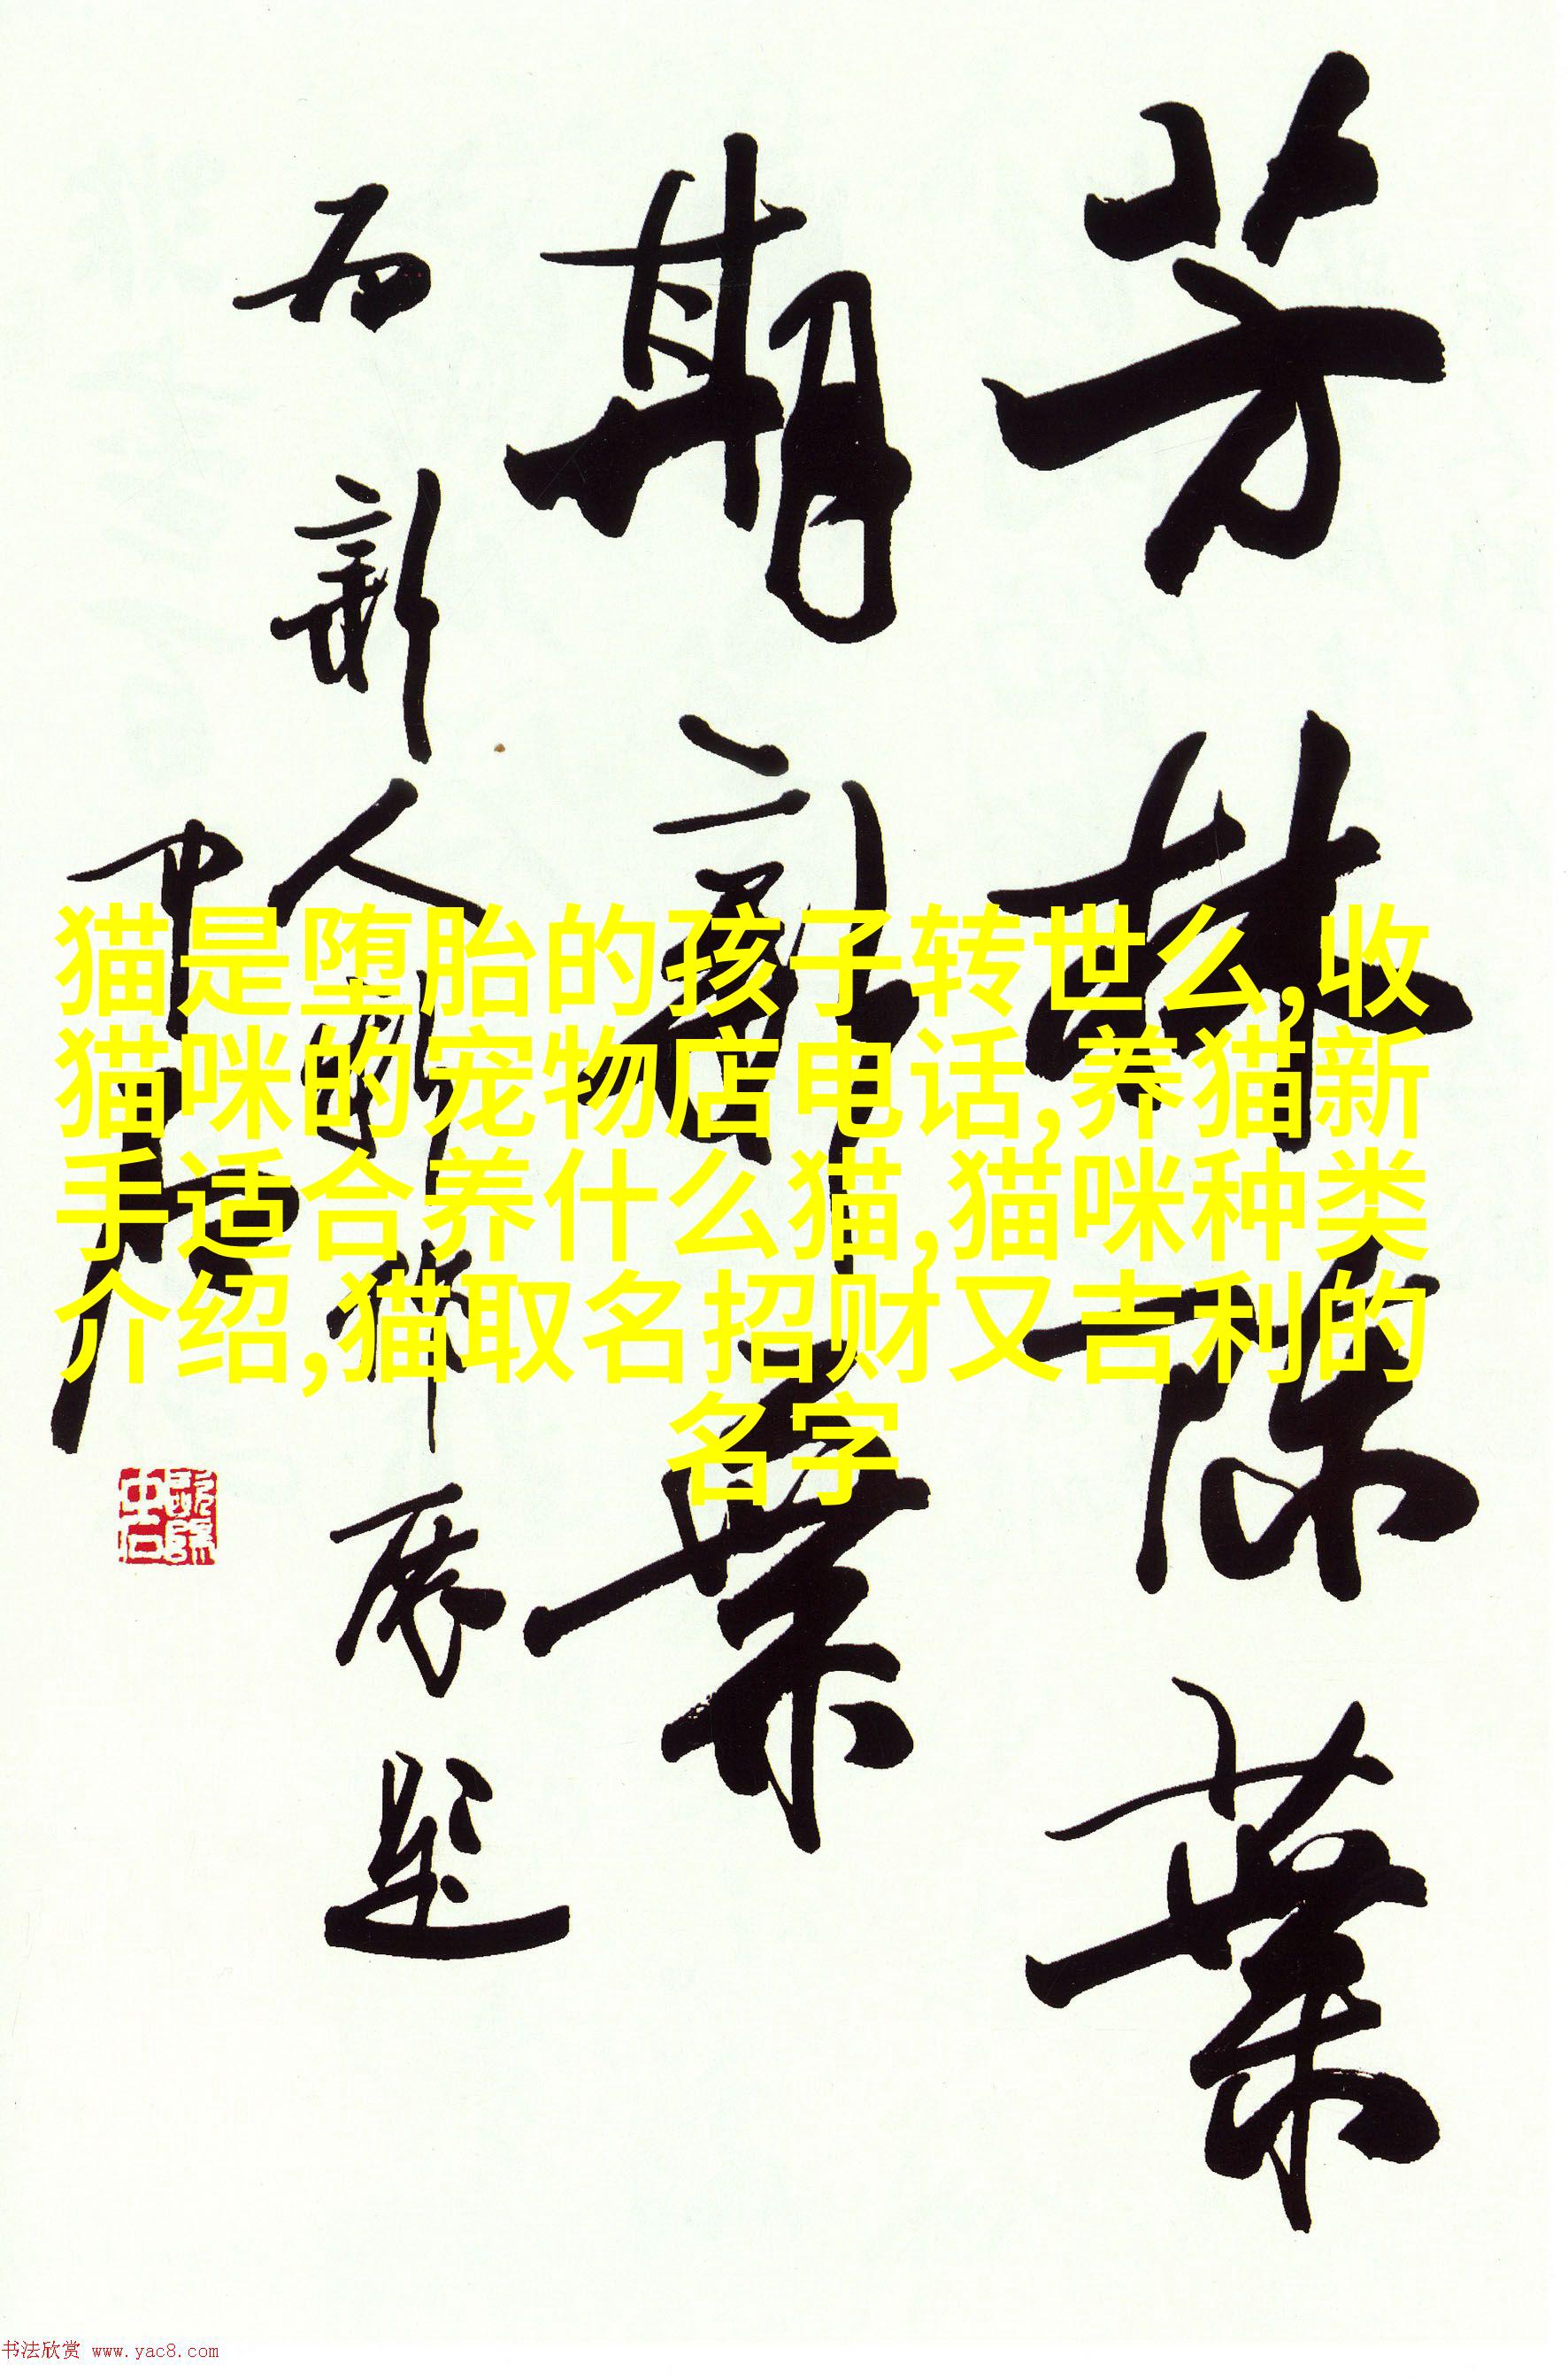 芳林陈葉
期新葉
为新人新作展題
中石
猫是堕胎的孩子转世么,收
猫咪的宠物店电话,养猫新
手适合养什么猫,猫咪种类
介绍,猫取名招财又吉利的
名字
书法欣赏 www.yac8.com